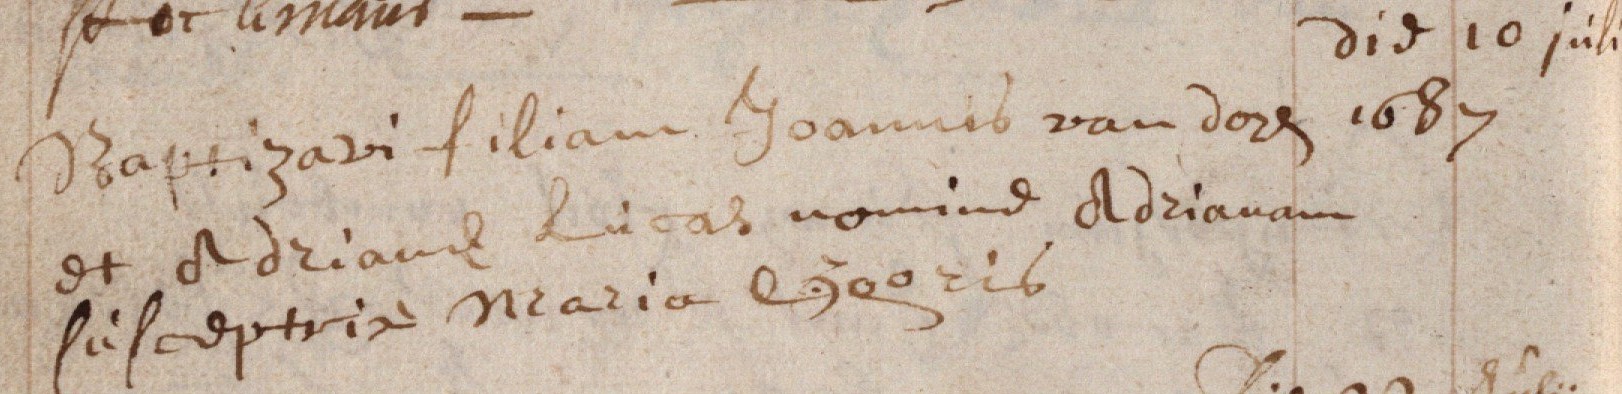 die 10 juli
Baptizavi filiam Joannis van dorn 1687
et Adrianæ Lucas nomine Adrianam
susceptrix Maria